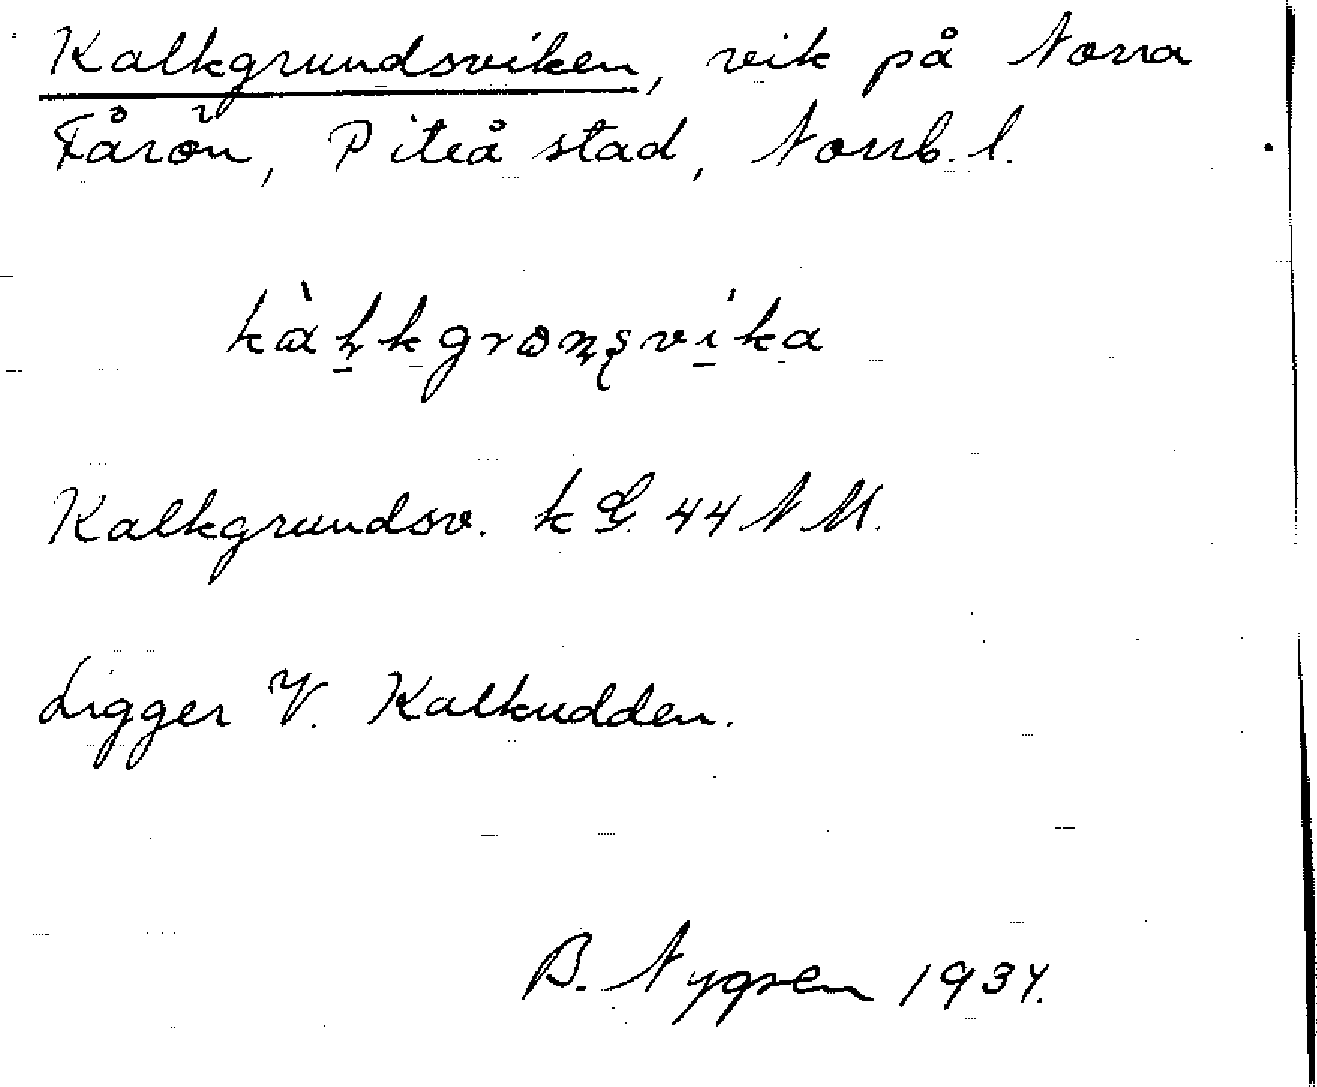 Kalkgrundsviken, vik på Norra
Fårön, Piteå stad, Norrb. l.
Kalkgrundsv. k 44 N M.
Ligger V. Kalkudden.
B. Nygren 1937.